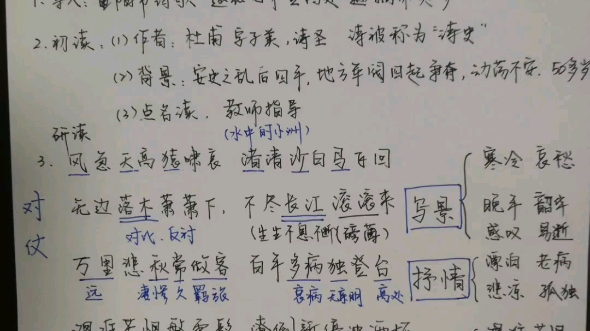 2.初读:(1)作者:杜甫 字子美,诗圣 诗被称为“诗史”
(2)背景:安史之乱后四年,地方军阀四起争夺,动荡不安.50多岁
(3)点名读. 教师指导
研读
(水中的小洲)
3. 风急天高猿啸哀 渚清沙白鸟飞回
无边落木萧萧下,不尽长江滚滚来
对仗
对比.反衬 (生生不息不断 磅薄)
写景
寒冷 哀愁
晚年 韶华
感叹 易逝
万里悲秋常做客 百年多病独登台
远 凄惨 久 羁旅 哀病 高处
抒情
漂泊 老病
悲凉 孤独